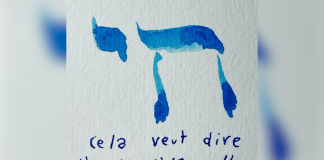 חי
cela veut dire